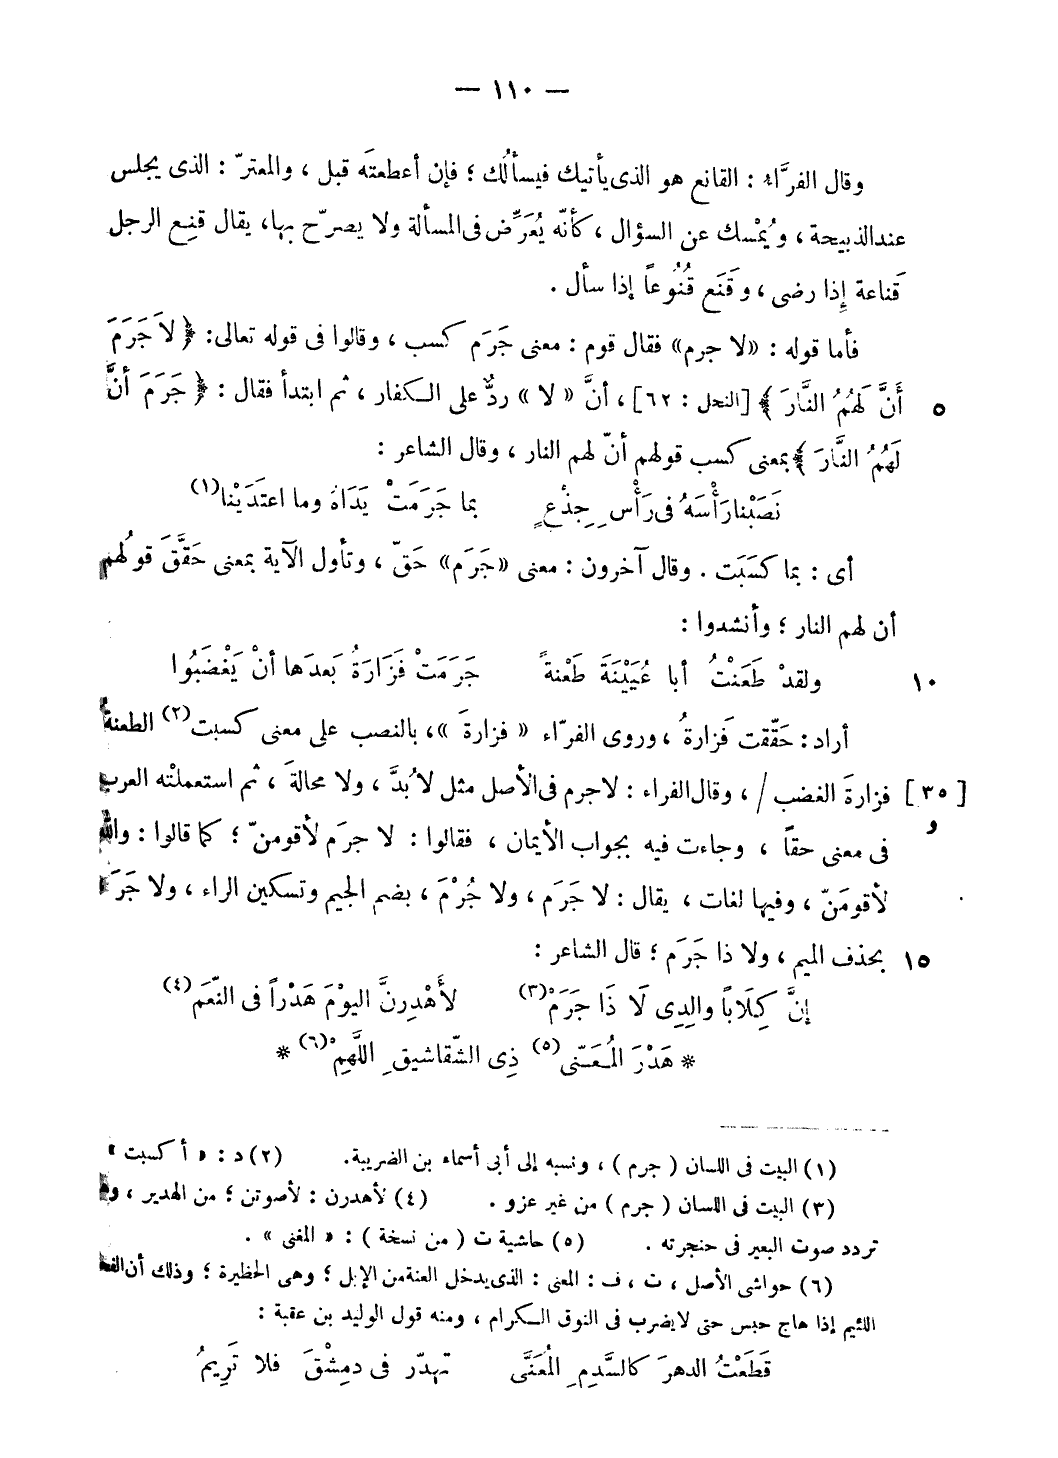 — ١١٠ —
وقال الفرَّاء : القانع هو الذى يأتيك فيسألُك ؛ فإن أعطعتَه قبل ، والمعترّ : الذى يجلس
عند الذبيحة ، ويُمْسك عن السؤال ، كأنّه يُعَرِّض فى المسألة ولا يصرّح بها، يقال قنِع الرجل
قَناعة إِذا رضى ، وقَنَع قُنُوعاً إذا سأل .
فأما قوله : «لا جرم» فقال قوم : معنى جَرَم كسب ، وقالوا فى قوله تعالى: ﴿ لاَ جَرَمَ
٥ أَنَّ لَهُمُ النَّارَ ﴾ [النحل : ٦٢] ، أنَّ « لا » ردٌّ على الكفار ، ثم ابتدأ فقال : ﴿ جَرَمَ أَنَّ
لَهُمُ النَّارَ ﴾ بمعنى كسب قولهم أنّ لهم النار ، وقال الشاعر :
نَصَبْنا رَأْسَهُ فى رَأْسِ جِذْعٍ بما جَرَمَتْ يَدَاهُ وما اعتَدَيْنا(١)
أى : بما كسَبَت . وقال آخرون : معنى «جَرَم» حَقّ ، وتأول الآية بمعنى حَقَّقَ قولُهم
أن لهم النار ؛ وأنشدوا :
١٠ ولقدْ طَعَنْتُ أبا عُيَيْنَةَ طَعْنةً جَرَمَتْ فَزَارَةُ بَعدَها أنْ يَغْضَبُوا
أراد : حَقّقت فَزارةُ ، وروى الفرّاء « فزارةَ »، بالنصب على معنى كسبت(٢) الطعنةُ
[ ٣٥ و ] فزارةَ الغضب / ، وقال الفراء : لاجرم فى الأصل مثل لا بُدَّ ، ولا محالةَ ، ثم استعملتْه العرب
فى معنى حقاً ، وجاءت فيه بجواب الأيمان ، فقالوا : لا جرَم لأقومنّ ؛ كما قالوا : والله
لأقومَنّ ، وفيها لغات ، يقال : لا جَرَم ، ولا جُرْمَ ، بضم الجيم وتسكين الراء ، ولا جَرَ
١٥ بحذف الميم ، ولا ذا جَرَم ؛ قال الشاعر :
إنَّ كِلَاباً والِدِى لَا ذَا جَرَمْ(٣) لأَهْدِرنَّ اليوْمَ هَدْراً فى النّعَم(٤)
* هَدْرَ المُعَنّى(٥) ذِى الشّقاشيقِ اللَّهِمْ(٦) *
(١) البيت فى اللسان ( جرم ) ، ونسبه إلى أبى أسماء بن الضريبة. (٢) د : « أكسبت »
(٣) البيت فى اللسان ( جرم ) من غير عزو . (٤) لأهدرن : لأصوتن ؛ من الهدير ، وهو
تردد صوت البعير فى حنجرته . (٥) حاشية ت ( من نسخة ) : « المغنى » .
(٦) حواشى الأصل ، ت ، ف : المعنى : الذى يدخل العنة من الإبل ؛ وهى الحظيرة ؛ وذلك أن الفحل
اللئيم إذا هاج حبس حتى لا يضرب فى النوق الكرام ، ومنه قول الوليد بن عقبة :
قَطَعْتُ الدهرَ كالسَّدِمِ المُعَنَّى تهدّر فى دمِشْقَ فلا تَرِيمُ